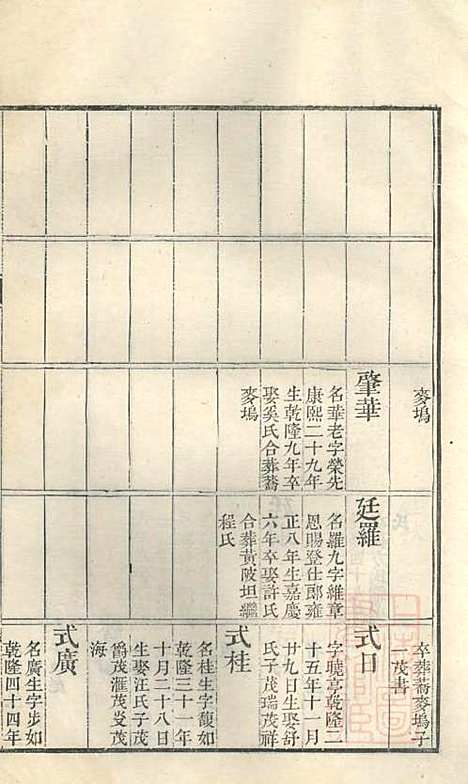 麥塢
肇華
名華老字榮先
康熙二十九年
生乾隆九年卒
娶奚氏合葬蕎
麥塢
廷羅
名羅九字維章
恩賜登仕郎雍
正八年生嘉慶
六年卒娶許氏
合葬黃陂坦繼
程氏
卒葬蕎麥塢子
一茂書
式日
字曉亭乾隆二
十五年十一月
廿九日生娶舒
氏子茂瑞茂祥
式桂
名桂生字馥如
乾隆三十一年
十月二十八日
生娶汪氏子茂
茂滙茂
海
式廣
名廣生字步如
乾隆四十四年